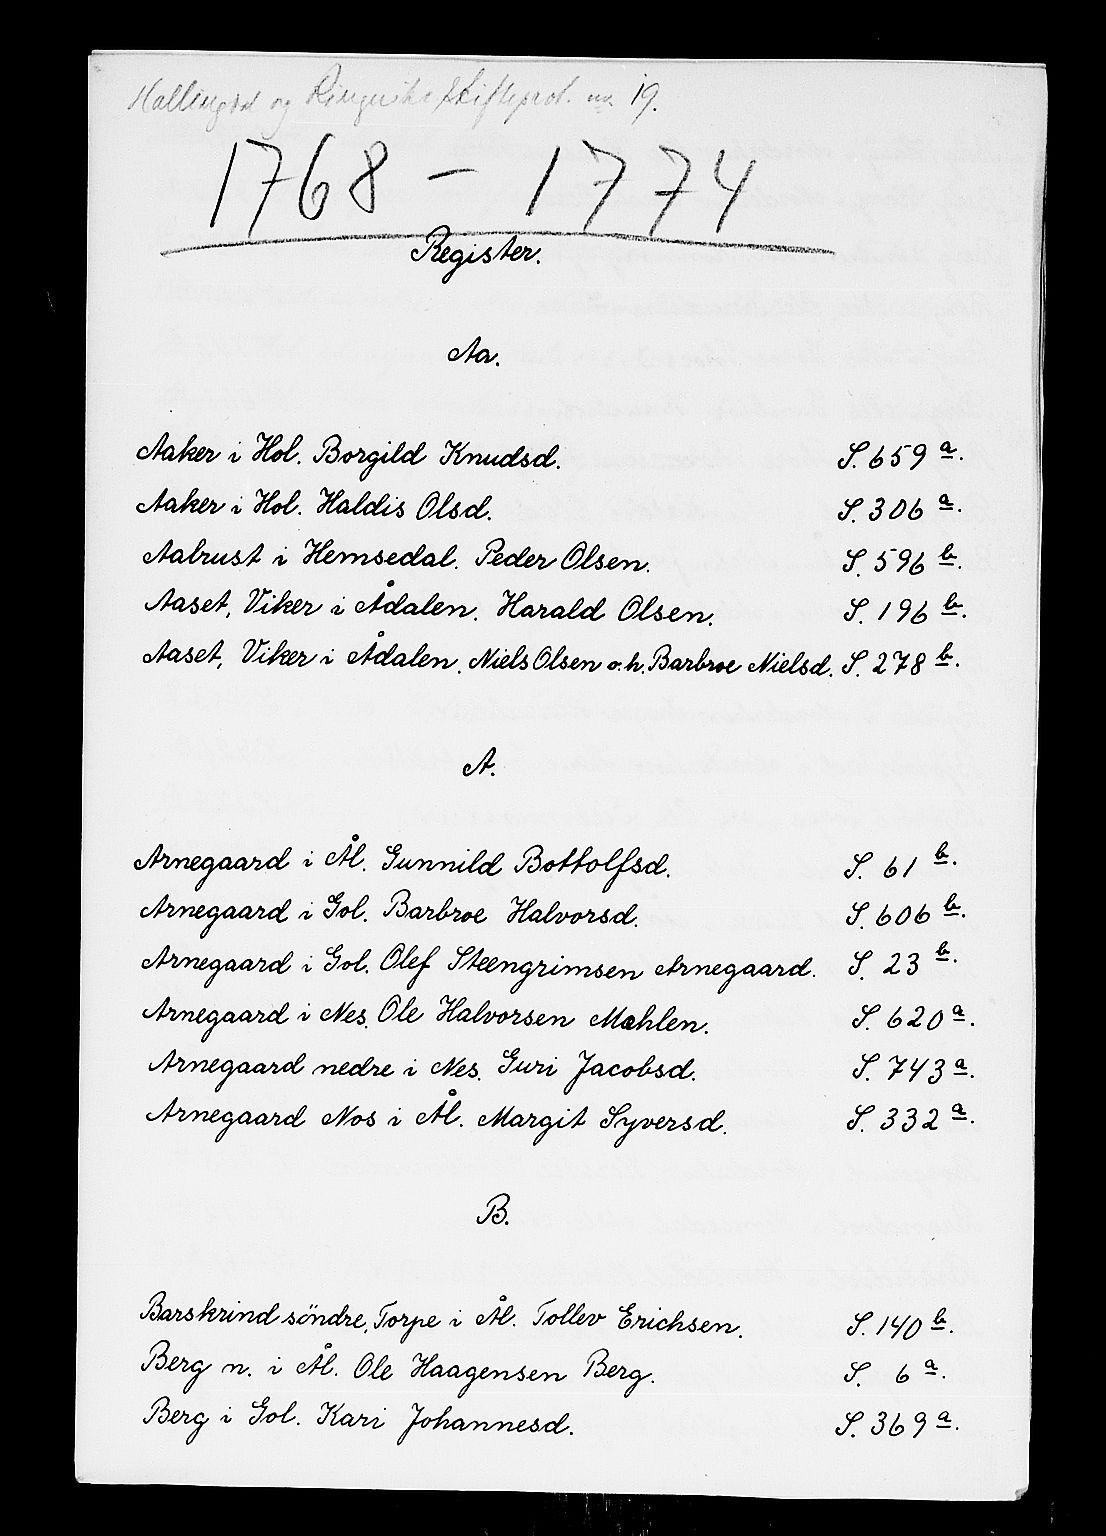 Hallingdal og Ringerike skifteprot. nr. 19.
1768 – 1774
Register.
Aa.
Aaker i Hol. Borgild Knudsd. S. 659 a.
Aaker i Hol. Haldis Olsd. S. 306 a.
Aalrust i Hemsedal. Peder Olsen. S. 596 b.
Aaset, Viker i Ådalen. Harald Olsen. S. 196 b.
Aaset, Viker i Ådalen. Niels Olsen o.h. Barbroe Nielsd. S. 278 b.
A.
Arnegaard i Ål. Gunnild Bottolfsd. S. 61 b.
Arnegaard i Gol. Barbroe Halvorsd. S. 606 b.
Arnegaard i Gol. Olef Steengrimsen Arnegaard. S. 23 b.
Arnegaard i Nes. Ole Halvorsen Mæhlen. S. 620 a.
Arnegaard nedre i Nes. Guri Jacobsd. S. 743 a.
Arnegaard Nos i Ål. Margit Syversd. S. 332 a.
B.
Barskrind söndre, Torpe i Ål. Tollev Erichsen. S. 140 b.
Berg n. i Ål. Ole Haagensen Berg. S. 6 a.
Berg i Gol. Kari Johannesd. S. 369 a.